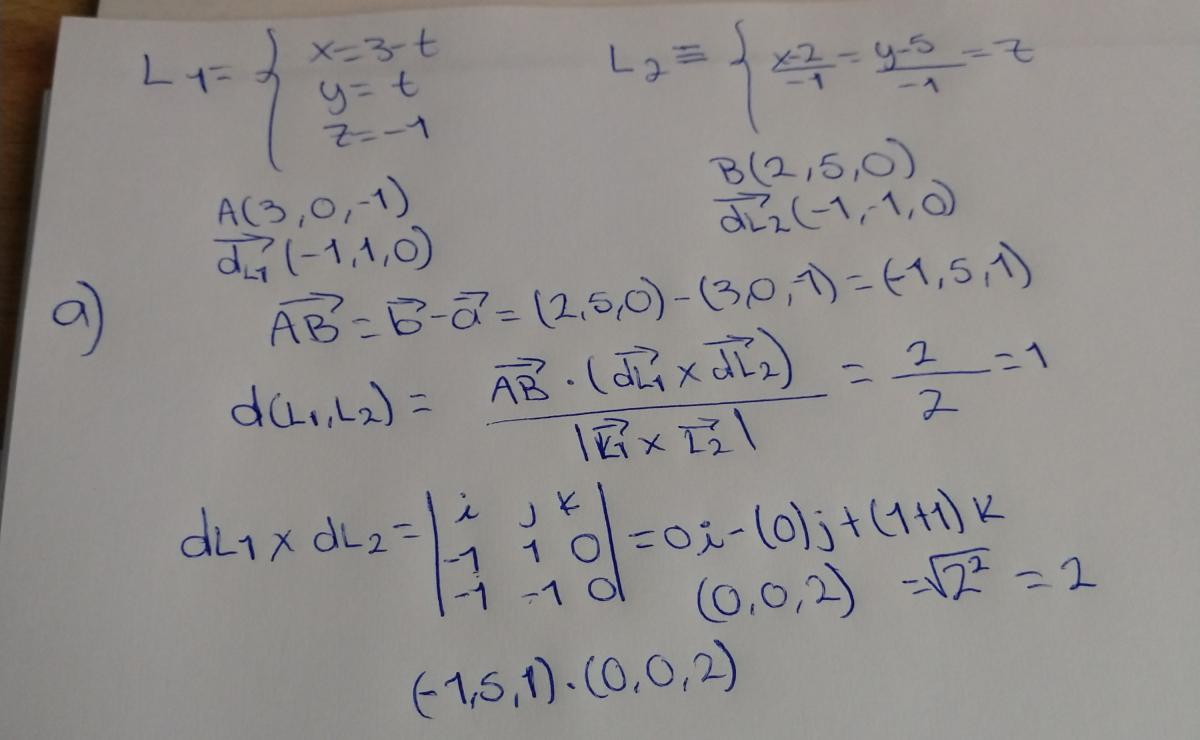 L1= { x=3-t
y= t
z=-1
L2 ≡ { x-2/-1 = y-5/-1 = z
A(3,0,-1)
dL1 (-1,1,0)
B(2,5,0)
dL2 (-1,-1,0)
a)
AB = b - a = (2,5,0) - (3,0,-1) = (-1,5,1)
d(L1,L2) = AB · (dL1 x dL2) / |L1 x L2| = 2/2 = 1
dL1 x dL2 = | i j k | = 0i - (0)j + (1+1) k
-1 1 0
-1 -1 0
(0,0,2) = √2² = 2
(-1,5,1) · (0,0,2)